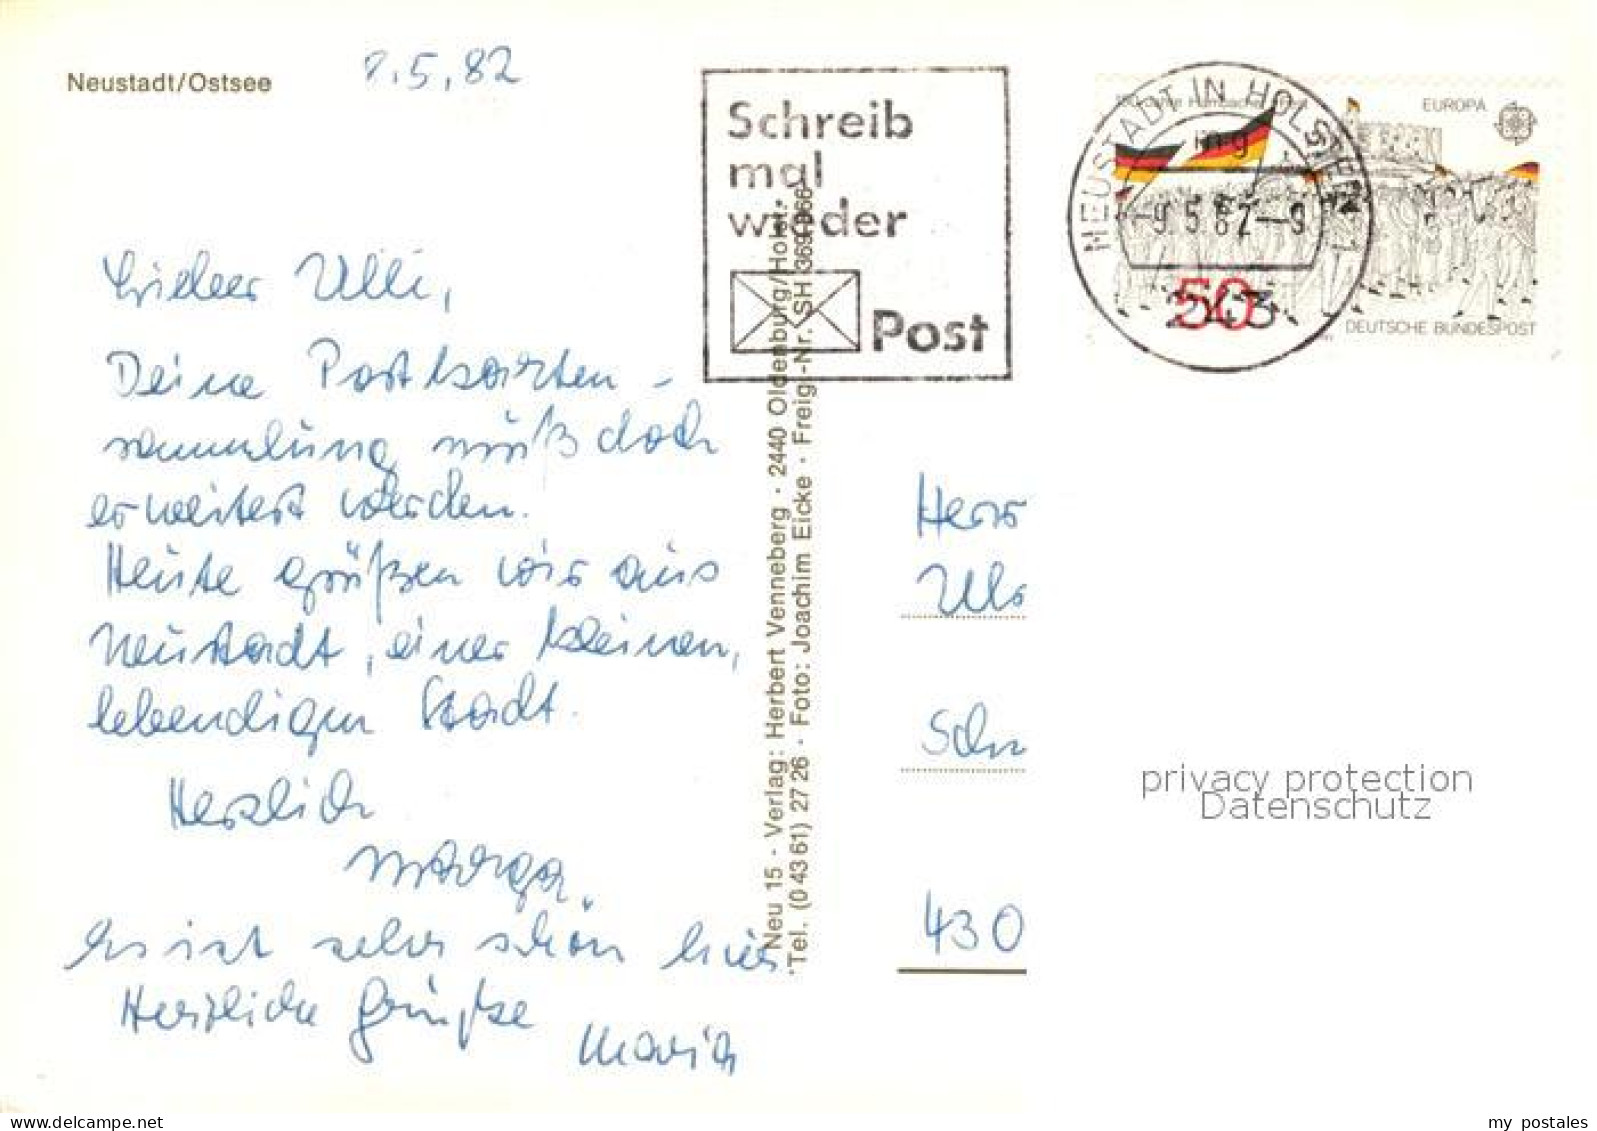 Neustadt/Ostsee
8.5.82
Lieber Ulli,
Deine Postkarten-
sammlung muß doch
erweitert werden.
Heute grüßen wir aus
Neustadt, einer kleinen,
lebendigen Stadt.
Herzlich
Marga.
Es ist sehr schön hier
Herzliche Grüße
Maria
Neu 15 · Verlag: Herbert Venneberg · 2440 Oldenburg/Holst.
Tel. (0 43 61) 27 26 · Foto: Joachim Eicke · Freig.-Nr. SH
Schreib
mal
wieder
Post
NEUSTADT IN HOLSTEIN 1
mg
-9.5.82--9
2430
50
EUROPA
DEUTSCHE BUNDESPOST
Herr
Ulr
Sch
430
privacy protection
Datenschutz
my postales